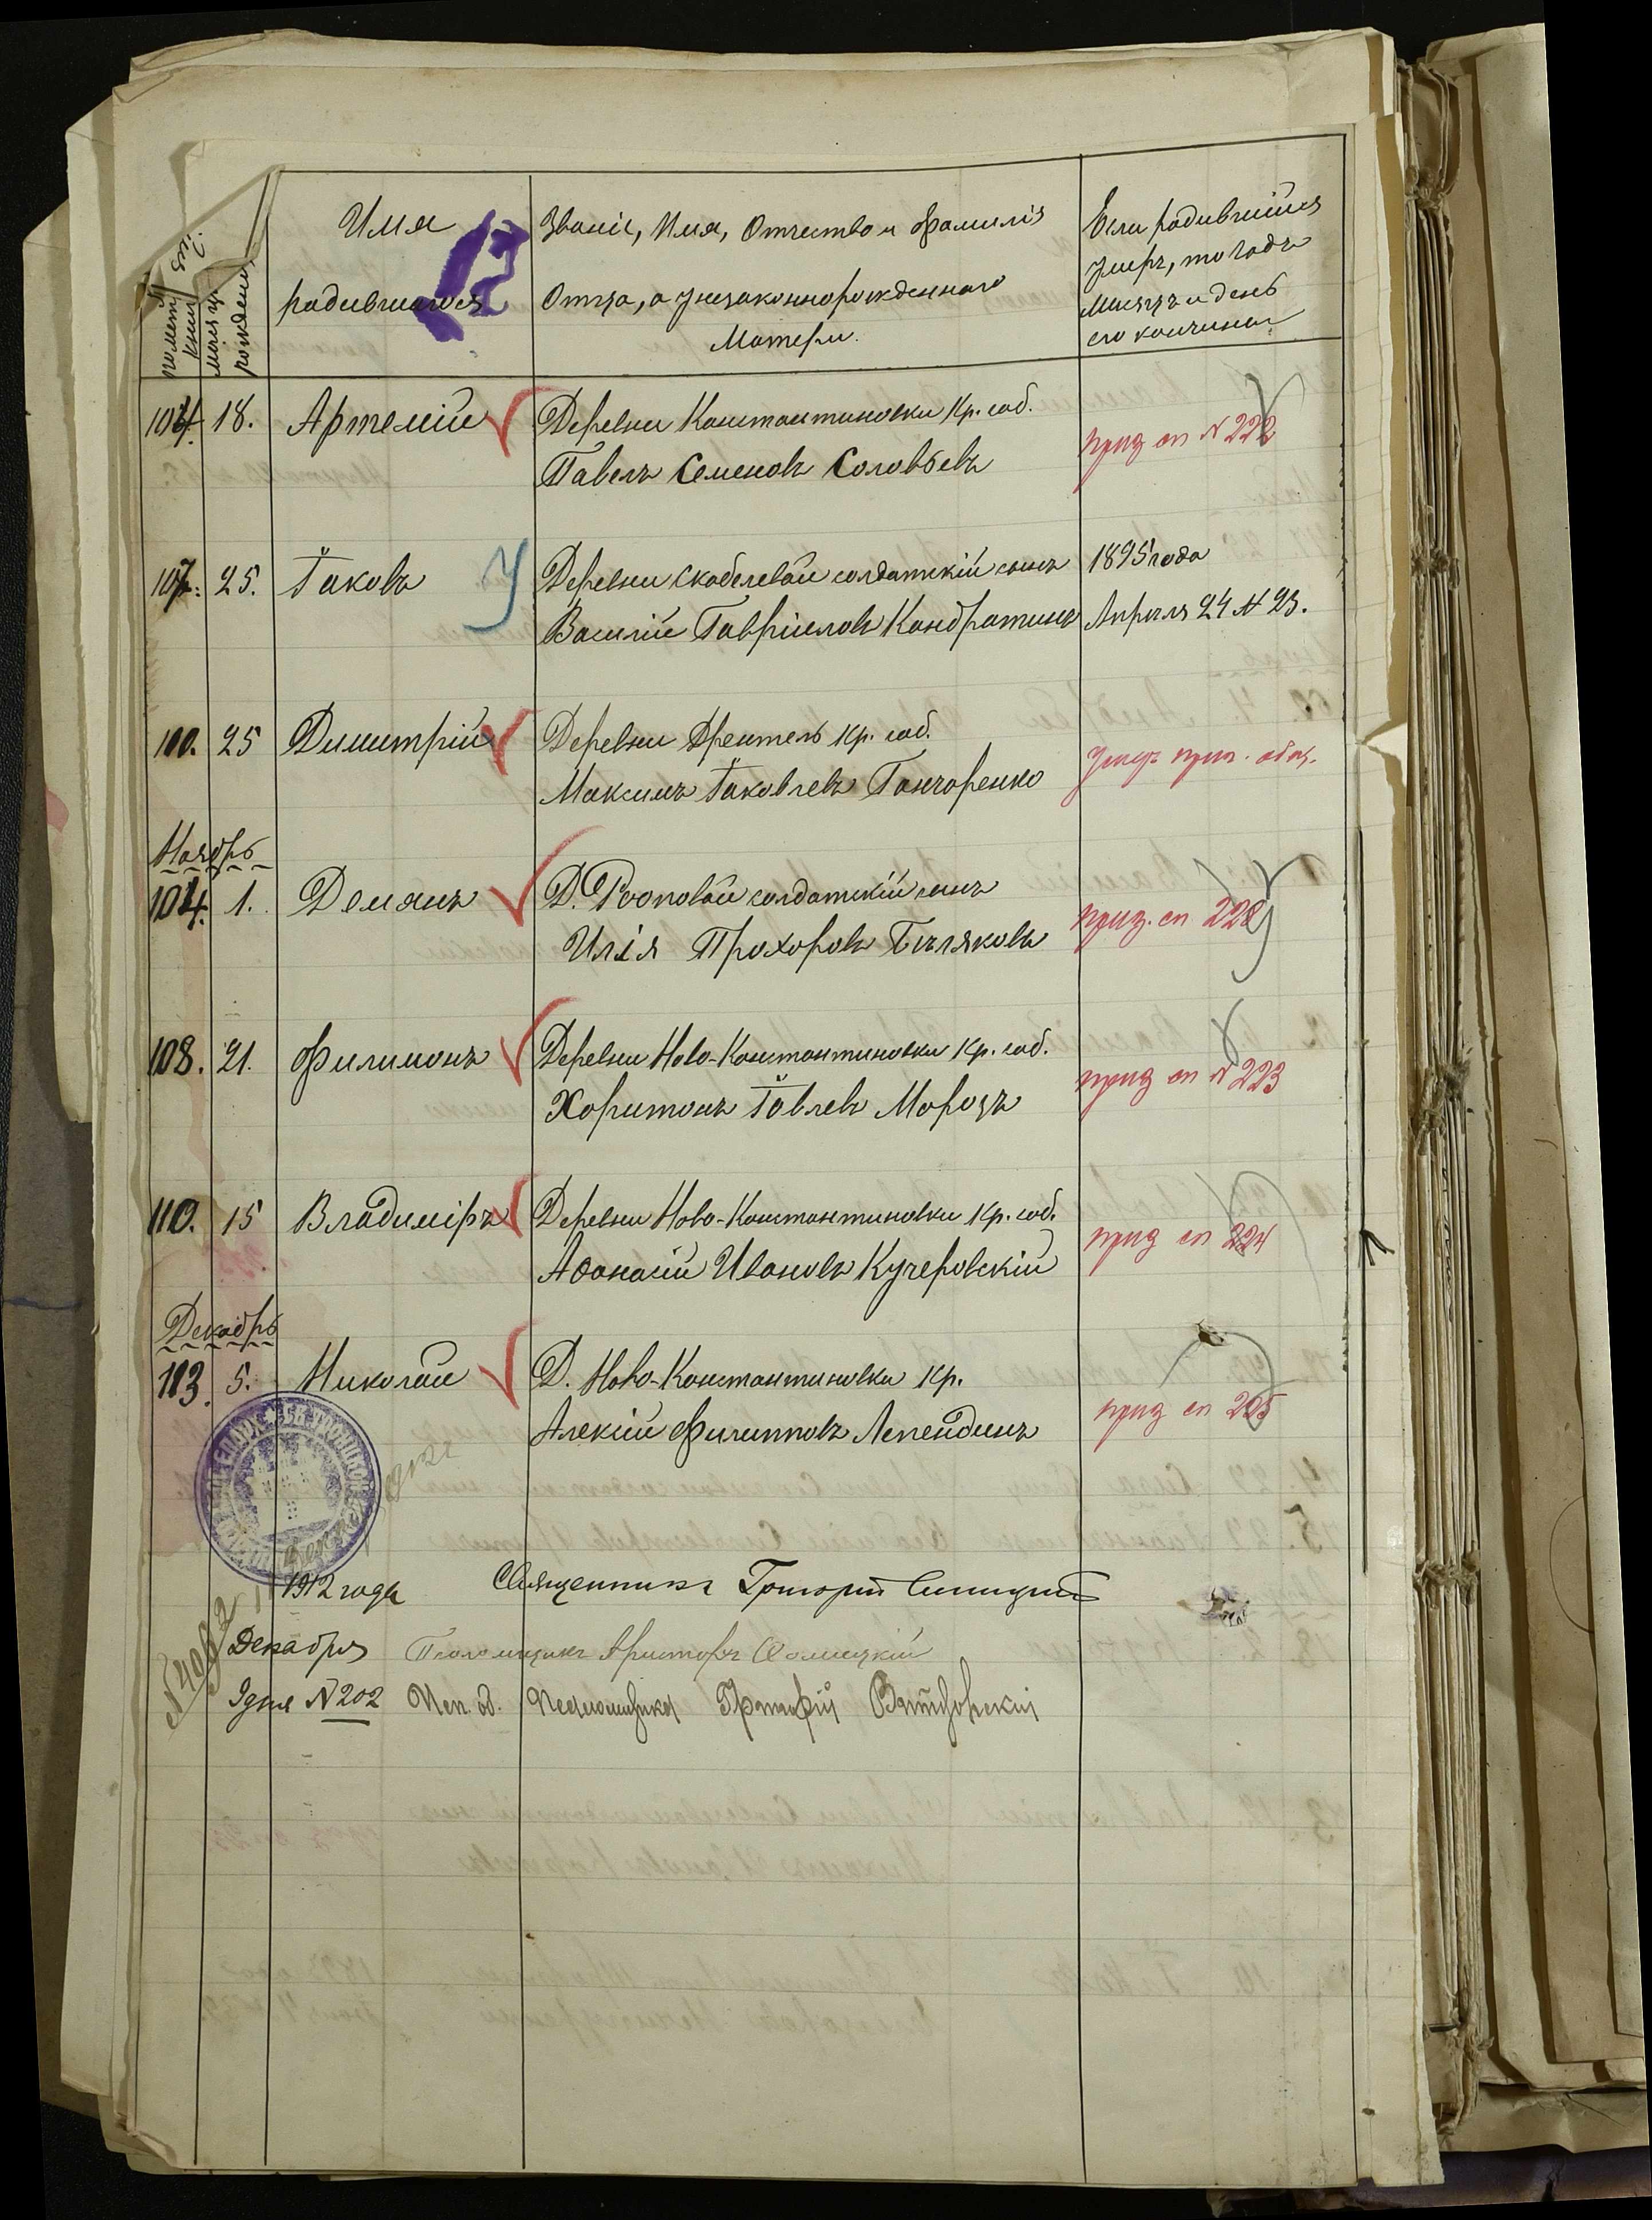 Имя
родившагося
Званіе, Имя, Отчество и Фамилія
Отца, а у незаконнорожденнаго
Матери.
Если родившійся
умеръ, то годъ
Мѣсяцъ и день
его кончины
104. 18. Артемій Деревни Константиновки Кр. соб.
Павелъ Семеновъ Соловьевъ
приз сп № 222
107. 25. Іаковъ У Деревни Скобелевой солдатскій сынъ
Василій Гавріиловъ Кондратинъ
1895 года
Апрѣля 24 № 23.
100. 25 Димитрій Деревни Дрентель кр. соб.
Максимъ Іаковлевъ Гончаренко
Ноябрь
104. 1. Демянъ Д. Рооповой солдатскій сынъ
Илія Прохоровъ Бѣляковъ
приз. сп 228
108. 21. Филимонъ Деревни Ново-Константиновки Кр. соб.
Харитонъ Іовлевъ Морозъ
приз сп № 223
110. 15 Владиміръ Деревни Ново-Константиновки Кр. соб.
Аѳанасій Ивановъ Кучеровскій
приз сп 224
Декабрь
113. 5. Николай Д. Ново-Константиновки Кр.
Алексій Филипповъ Лепендинъ
приз сп 225
1912 года Священникъ Григорій
Декабря Псаломщикъ
9 дня № 202 Исп. об. Псаломщика